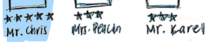 ★★★★★ ★★★ ★★★
Mr. Chris Mrs. Peach Mr. Karell